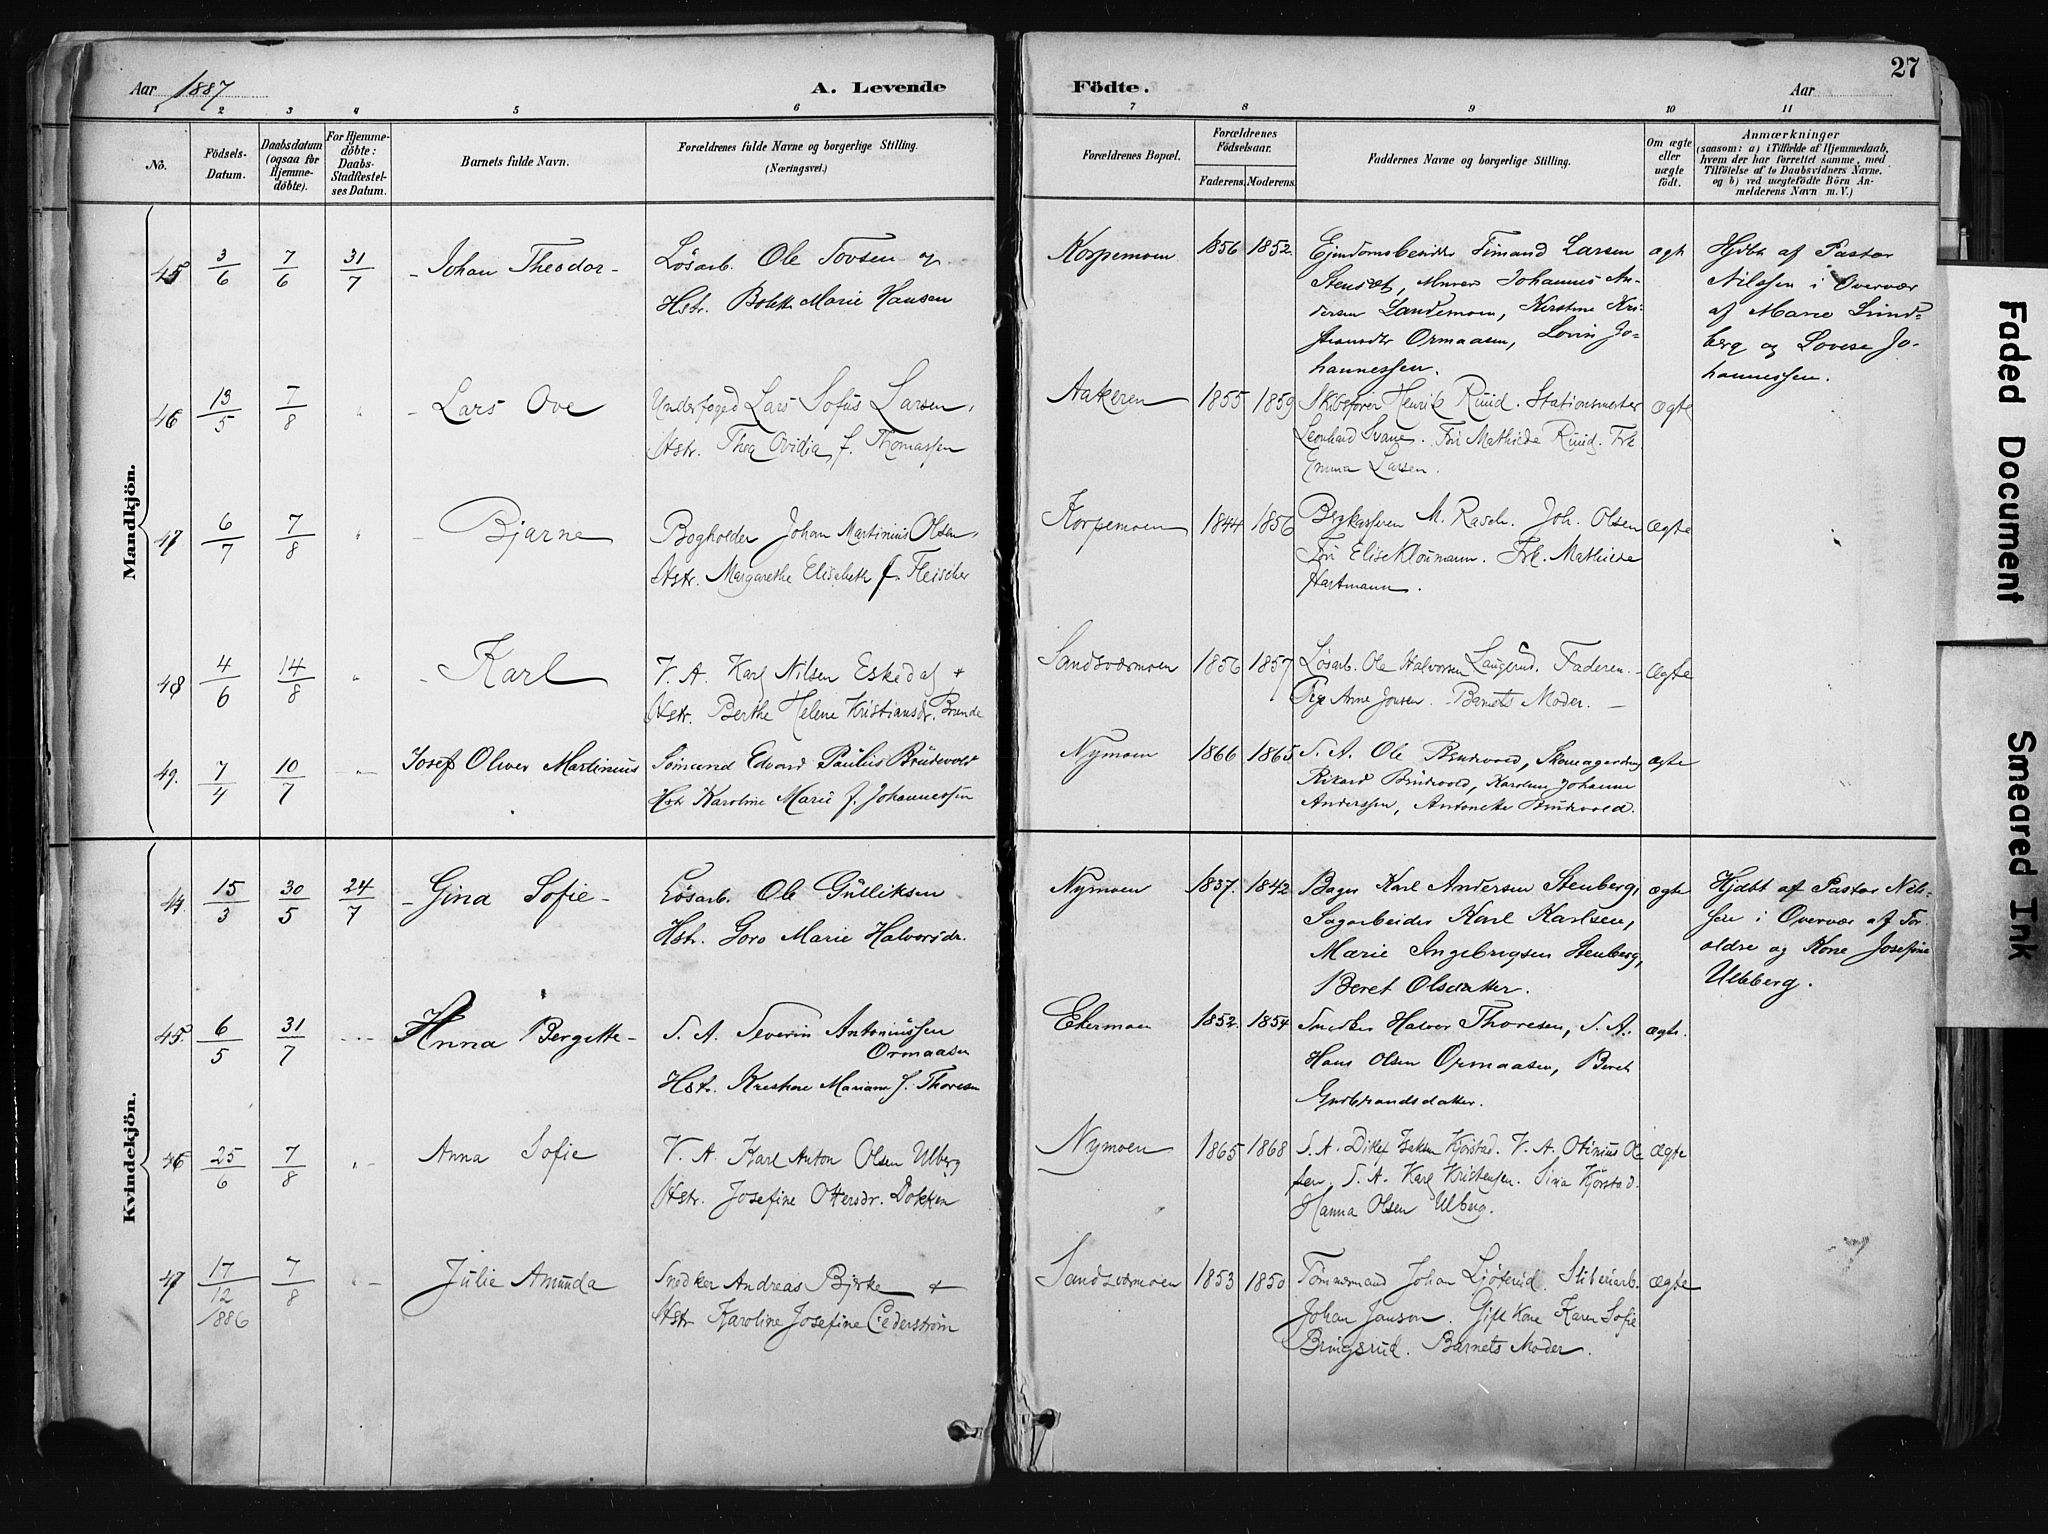 27
Aar 1887
A. Levende
Födte.
Aar
1 2 3 4 5 6 7 8 9 10 11
No.
Födsels-
Datum.
Daabsdatum
(ogsaa for
Hjemme-
döbte).
For Hjemme-
döbte:
Daabs-
Stadfæstel-
ses Datum.
Barnets fulde Navn.
Forældrenes fulde Navne og borgerlige Stilling.
(Næringsvei.)
Forældrenes Bopæl.
Forældrenes
Födselsaar.
Faderens. Moderens.
Faddernes Navne og borgerlige Stilling.
Om ægte
eller
uægte
födt.
Anmærkninger
(saasom: a) i Tilfælde af Hjemmedaab,
hvem der har forrettet samme, med
Tilföielse af to Daabsvidners Navne,
og b) ved uægtefödte Börn An-
melderens Navn m. V.)
Mandkjön.
45 3/6 7/6 31/7 Johan Theodor
Lösarb. Ole Tovsen og
Hst. Marie Hansen
Korpemoen 1856 1852
Larsen
Murer Johannes An-
dersen Landemoen, Kirstine Kri-
Ormaasen, Jo-
hannessen.
ægte
Hjdbt af Pastor
Nilssen i Overvær
af Marie Lund-
berg og Lovise Jo-
hannessen.
46 13/5 7/8 Lars Ove
Underfoged Lars Sofus Larsen,
Hstr. Thea Ovidia f. Thomassen
Aakeren 1855 1859
Skibsfører Henrik Ruud. Stationsmester
Leonhard Svane. Fru Mathilde Ruud. Frk.
Emma Larsen.
Ægte
47 6/7 7/8 Bjarne
Bogholder Johan Martinius Olsen,
Hstr. Margarethe Elisabeth f. Fleischer
Korpemoen 1844 1856
M. Rasch. Joh. Olsen
Fru Elise Kloumann. Frk. Mathilde
Hartmann.
Ægte
48 4/6 14/8 Karl
V. A. Karl Nilsen Eskedal +
Hstr. Berthe Helene Kristiansdr. Brunde
Sandsværmoen 1856 1857
Lösarb. Ole Halvorsen Laugerud. Faderen.
Pige Anne Jonsen. Barnets Moder.
Ægte
49. 7/4 10/7 Josef Oliver Martinius
Edvard Paulus Brudevold
Hst. Karoline Marie f. Johannessen
Nymoen 1866 1865
S. A. Ole Brudevold, Skomagerdreng
Rikard Brudevold, Karoline Johanne
Anderssen, Antonette Brudevold.
ægte
Kvindekjön.
44. 15/3 30/5 24/7 Gina Sofie
Lösarb. Ole Gulliksen
Hstr. Goro Marie Halvorsdr.
Nymoen 1837. 1842
Bager Karl Andersen Stenberg,
Sagarbeider Karl Karlsen,
Marie Ingebrigtsen Stenberg,
Beret Olsdatter.
ægte
Hjdbt af Pastor Nils-
sen i Overvær af For-
ældre og Kone Josefine
Ulleberg.
45. 6/5 31/7 Anna Bergitte
S. A. Severin Antoniussen
Ormaasen
Hst. Mariane f. Thoresen
Ekermoen 1852. 1854
Snedker Halvor Thoresen, S. A.
Hans Olsen Ormaasen, Beret
Gudbrandsdatter.
ægte.
46 25/6 7/8 Anna Sofie
V. A. Karl Anton Olsen Ulberg
Hstr. Josefine Ottersdr. Dokken
Nymoen 1865 1868
S. A. Ditlef Isaksen Kjørstad. V. A. Otinius Ol-
sen, S. A. Karl Kristensen. Sina Kjørstad.
Hanna Olsen Ulberg.
Ægte
47 17/12 1886 7/8 Julie Amunda
Snedker Andreas Bjerke +
Hstr. Karoline Josefine Cederstrøm
Sandsværmoen 1853 1850
Tömmermand Johan Ljöterud. Sliberiarb.
Johan Janson. Gift Kone Karen Sofie
Bringsrud. Barnets Moder.
ægte
Faded Document
Smeared Ink